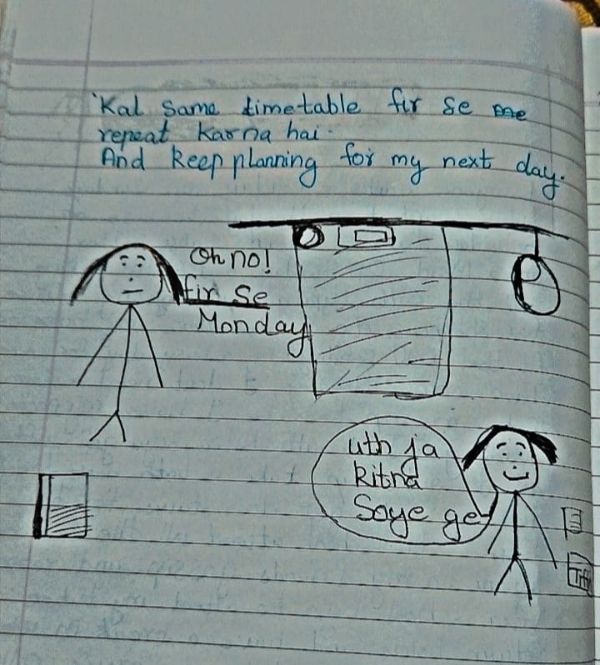 Kal same timetable fir se
repeat karna hai.
And keep planning for my next day.
Oh no!
fir se
Monday
uth ja
kitna
Soye ge